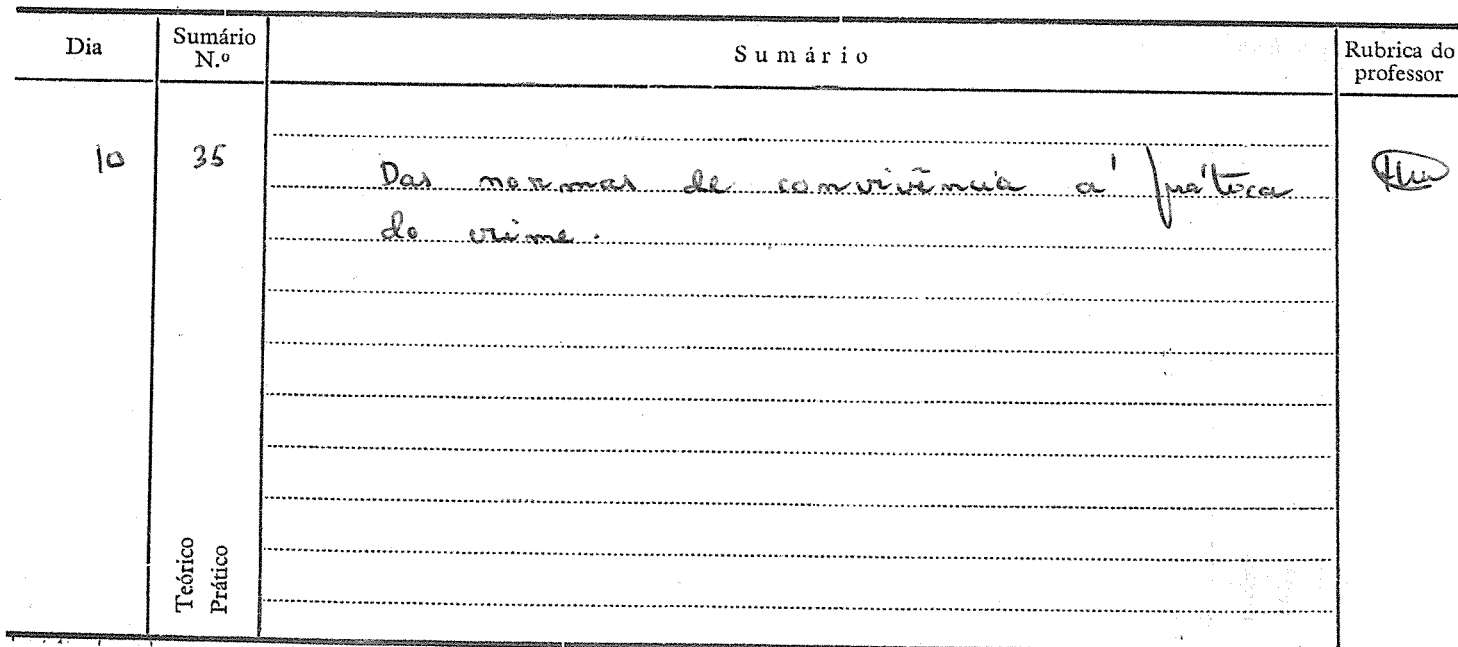 Dia
Sumário
N.º
Sumário
Rubrica do
professor
10
35
Das normas de convivência à prática
do crime.
Teórico
Prático